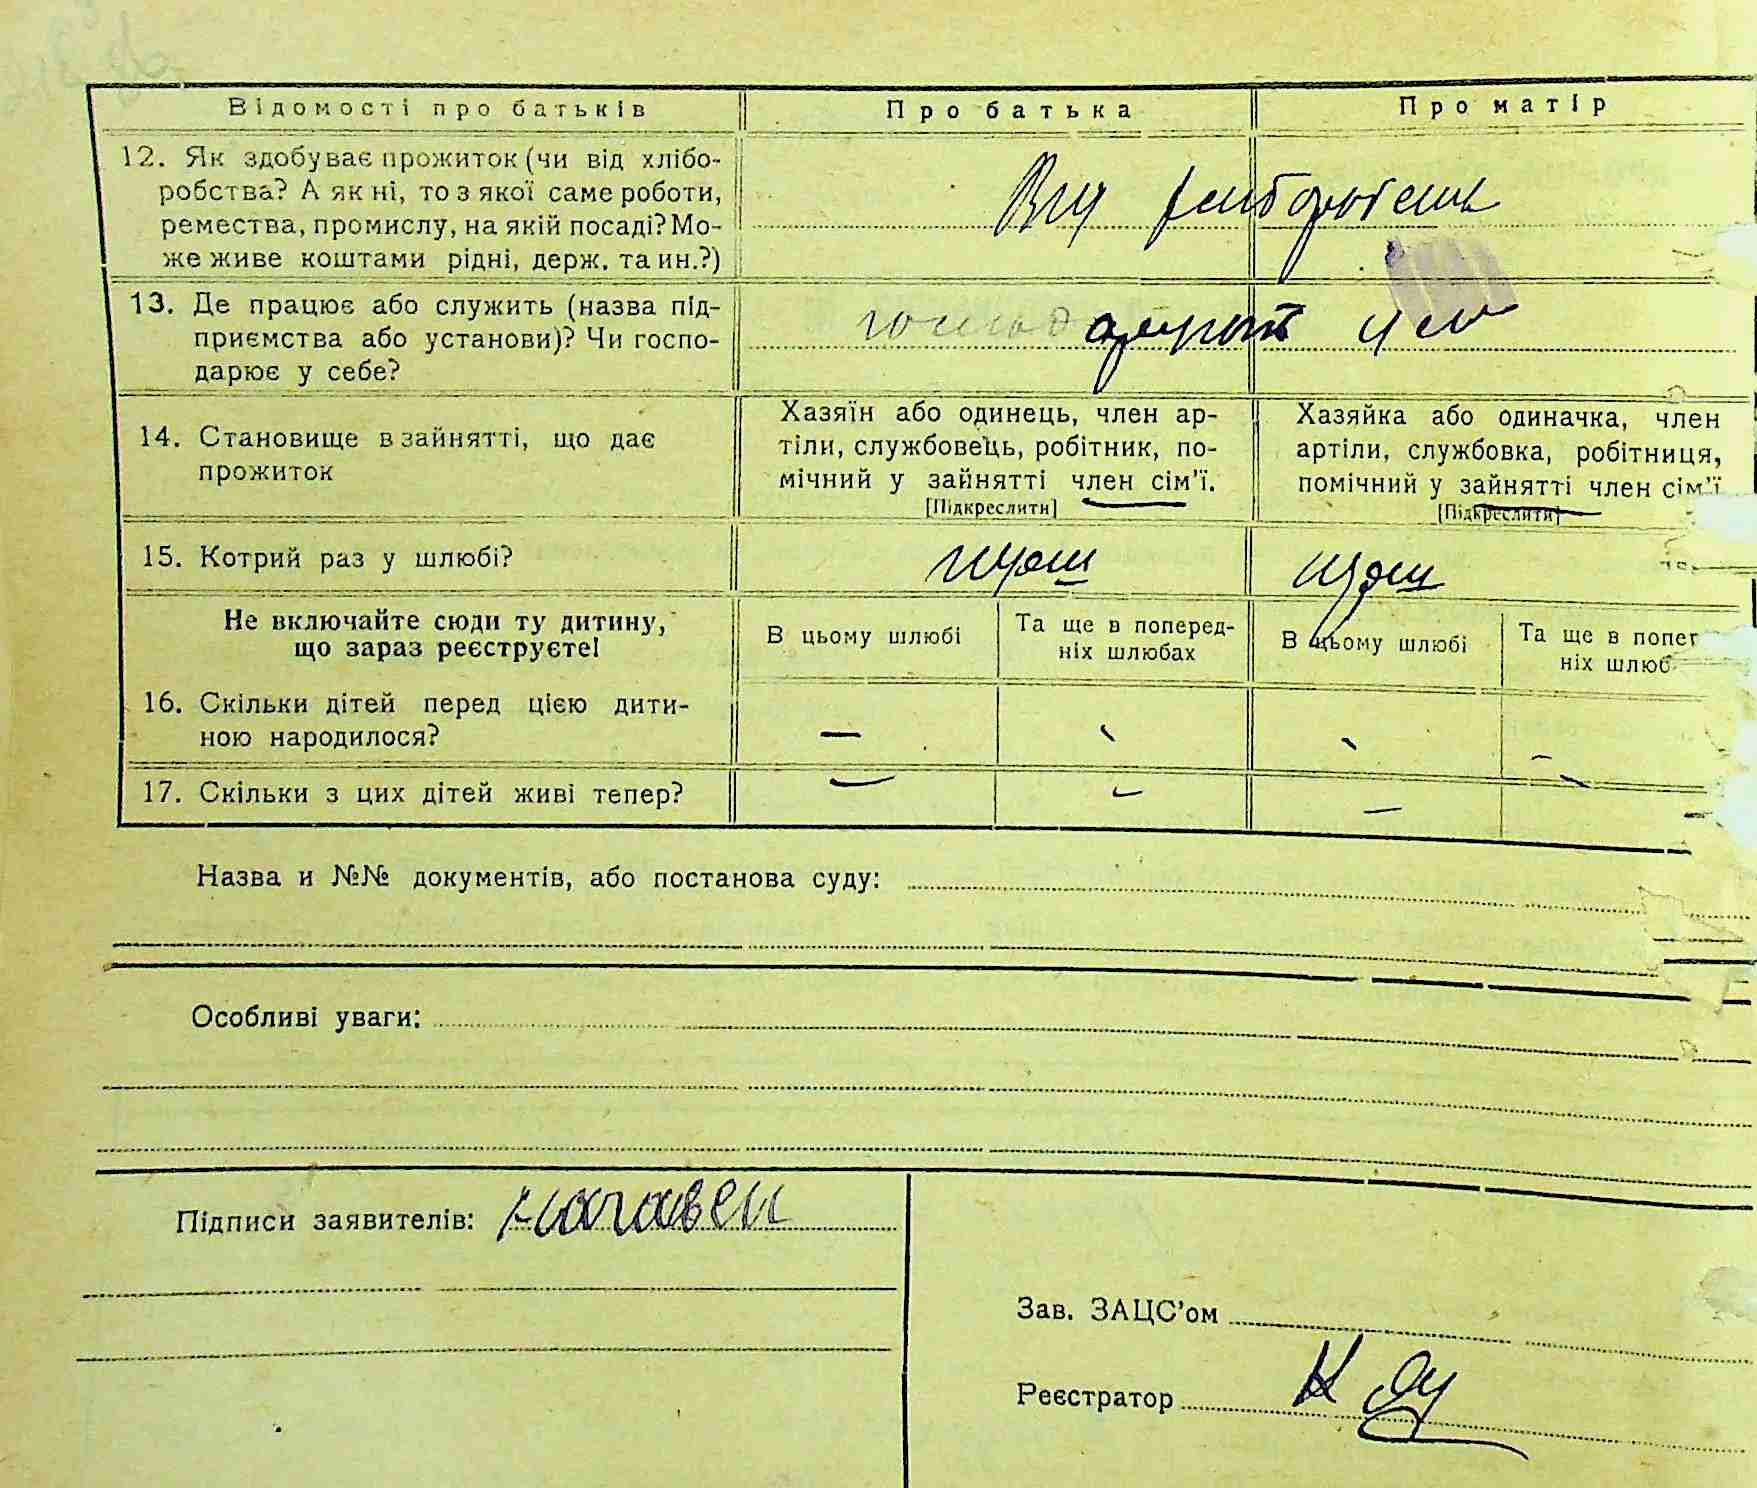 Відомості про батьків
Про батька
Про матір
12. Як здобуває прожиток (чи від хлібо-
робства? А як ні, то з якої саме роботи,
ремества, промислу, на якій посаді? Мо-
же живе коштами рідні, держ. та ин.?)
Від хліборобства
13. Де працює або служить (назва під-
приємства або установи)? Чи госпо-
дарює у себе?
14. Становище в зайнятті, що дає
прожиток
Хазяїн або одинець, член ар-
тіли, службовець, робітник, по-
мічний у зайнятті член сім'ї.
[Підкреслити]
Хазяйка або одиначка, член
артіли, службовка, робітниця,
помічний у зайнятті член сім'ї
[Підкреслити]
15. Котрий раз у шлюбі?
Не включайте сюди ту дитину,
що зараз реєструєте!
В цьому шлюбі
Та ще в поперед-
ніх шлюбах
В цьому шлюбі
Та ще в попер
ніх шлюб
16. Скільки дітей перед цією дити-
ною народилося?
— — — —
17. Скільки з цих дітей живі тепер?
— — — —
Назва и №№ документів, або постанова суду:
Особливі уваги:
Підписи заявителів:
Зав. ЗАЦС'ом
Реєстратор